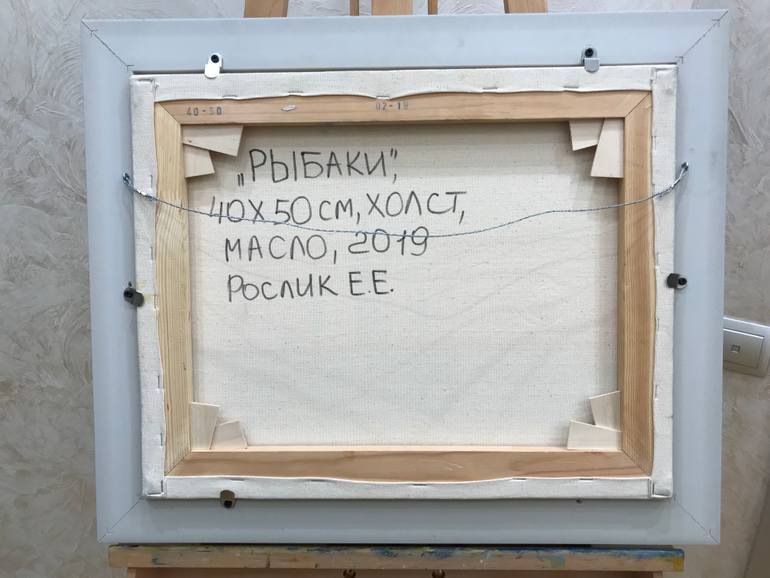 40-50 02-19
„РЫБАКИ",
40Х50 СМ, ХОЛСТ,
МАСЛО, 2019
РОСЛИК Е.Е.